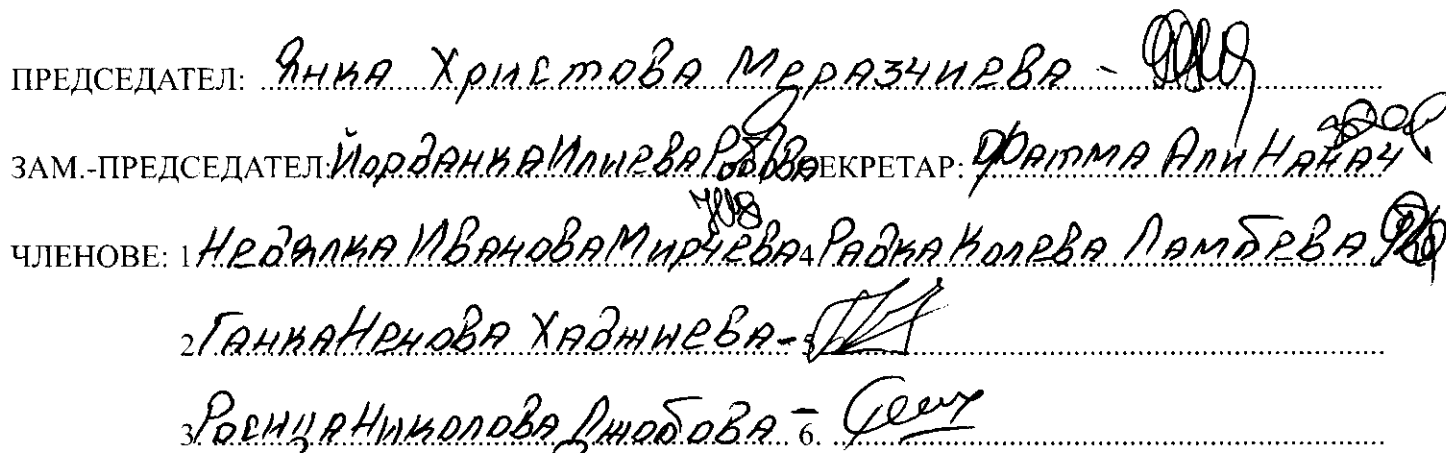 ПРЕДСЕДАТЕЛ: Янка Христова Меразчиева -
ЗАМ.-ПРЕДСЕДАТЕЛ: Йорданка Илиева СЕКРЕТАР: Фатма Али
ЧЛЕНОВЕ: 1 Недялка Иванова Мирчева 4 Радка Колева Ламбева
2 Ганка Ненова Хаджиева - 5
3 Росица Николова Джобова - 6.